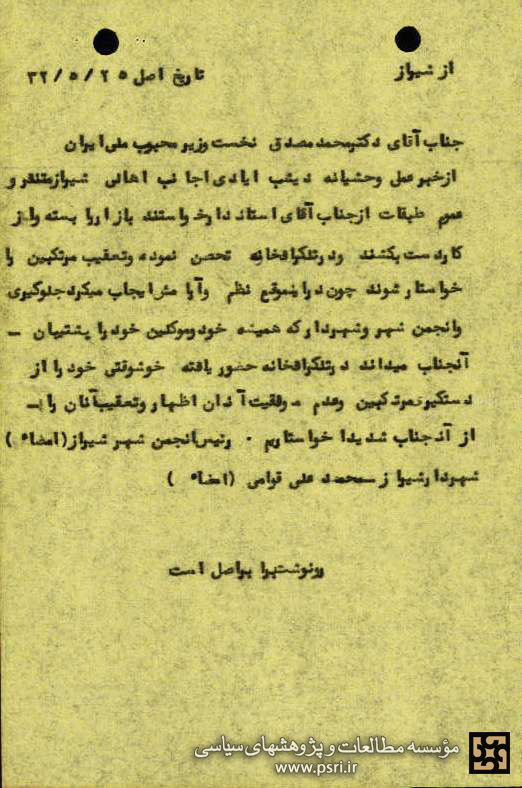 از شیراز
تاریخ اصل ۳۲/۵/۲۵
جناب آقای دکتر محمد مصدق نخست وزیر محبوب ملی ایران
از خبر عمل وحشیانه دیشب ایادی اجانب اهالی شیراز متنفر و
عموم طبقات از جناب آقای استاندار خواستند بازار را بسته و از
کار دست بکشند و در تلگرافخانه تحصن نموده و تعقیب مرتکبین را
خواستار شوند چون در اینموقع نظم و آرامش ایجاب میکرد جلوگیری
و انجمن شهر و شهردار که همیشه خود و موکلین خود را پشتیبان ــ
آنجناب میداند در تلگرافخانه حضور یافته خوشوقتی خود را از
دستگیری مرتکبین و عدم موفقیت آنان اظهار و تعقیب آنان را ــ
از آنجناب شدیدا خواستاریم ۰ رئیس انجمن شهر شیراز (امضاء )
شهردار شیراز ــ محمد علی قوامی (امضاء )
رونوشت برابر اصل است
مؤسسه مطالعات و پژوهشهای سیاسی
www.psri.ir